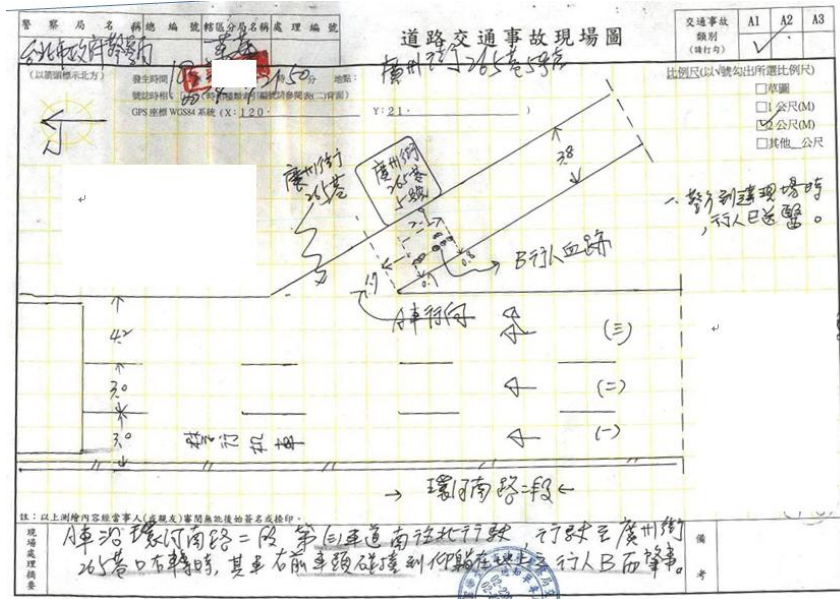 警察局名稱總編號 轄區分局名稱處理編號
台北市政府警察局
道路交通事故現場圖
交通事故類別(請打勾) A1 A2 A3
(以箭頭標示北方)
發生時間
50分 地點:
廣州街265巷5號前
GPS座標 WGS84系統 (X:120. Y:21. )
比例尺(以√號勾出所選比例尺)
□草圖
□1公尺(M)
□2公尺(M)
□其他_公尺
北
廣州街
265巷
廣州街
265巷
5號
3.8
一、警方到達現場時
,行人已送醫。
B行人血跡
1.9
0.7
0.8
A車行向
4.2
(三)
3.0
(二)
3.0
禁行機車
(一)
→ 環河南路二段 ←
註:以上測繪內容經當事人(或親友)審閱無訛後始簽名或捺印。
現場處理摘要
A車沿環河南路二段第(三)車道南往北行駛,行駛至廣州街
265巷口右轉時,其車右前車頭碰撞到仰躺在地上之行人B而肇事。
備考